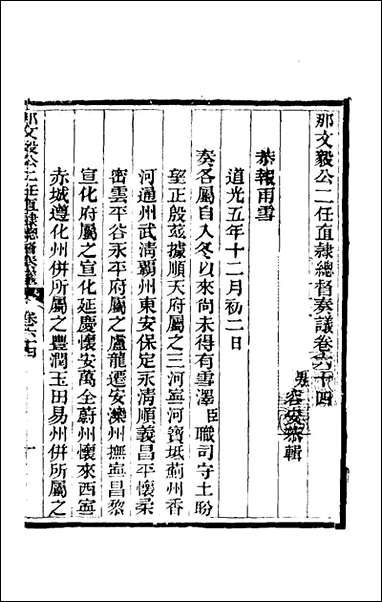 那文毅公二任直隸總督奏議卷六十四
男容安恭輯
恭報雨雪
道光五年十二月初二日
奏各屬自入冬以來尚未得有雪澤臣職司守土盼
望正殷茲據順天府屬之三河寧河寶坻薊州香
河通州武清霸州東安保定永清順義昌平懷柔
密雲平谷永平府屬之盧龍遷安灤州撫寧昌黎
宣化府屬之宣化延慶懷安萬全蔚州懷來西寧
赤城遵化州併所屬之豐潤玉田易州併所屬之
那文毅公二任直隸總督奏議
卷六十四
一